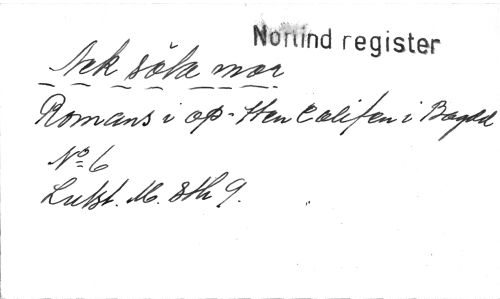 Norlind register
Ack söta mor
Romans i op. Hen Califen i Bagdad
No 6
Lutst. M. Sth 9.